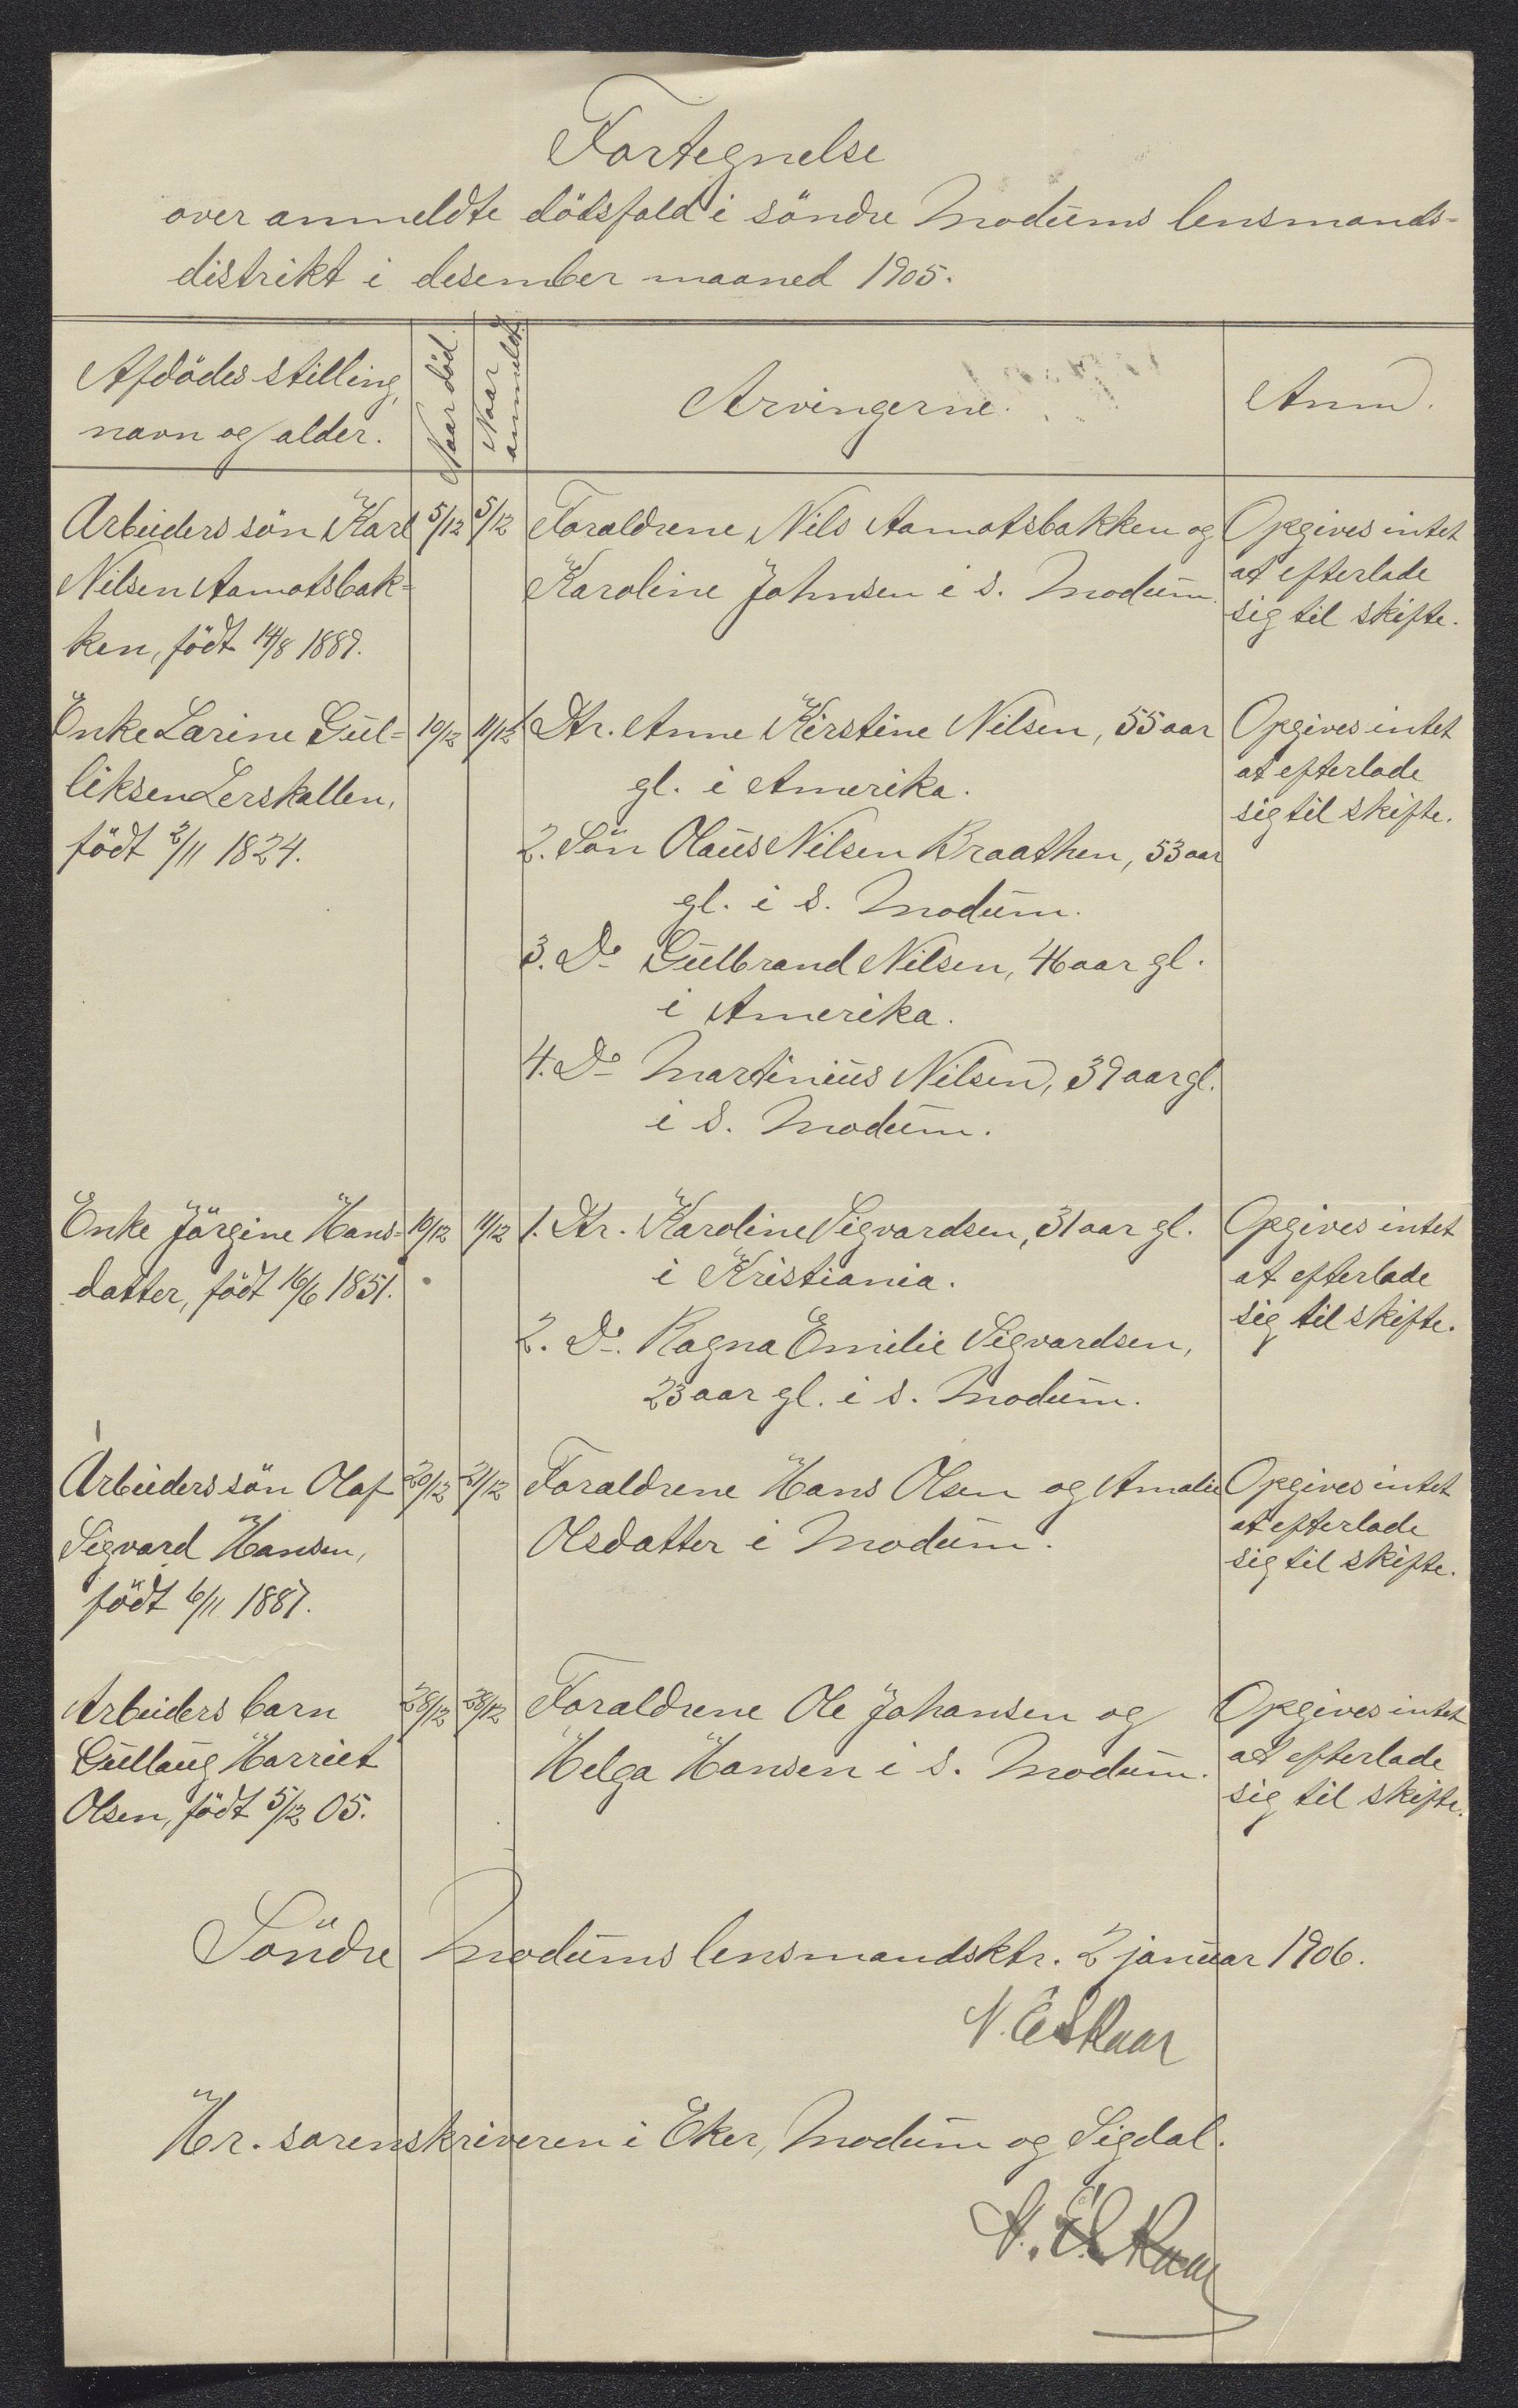 Fortegnelse
over anmeldte dödsfald i söndre Modums lensmands-
distrikt i desember maaned 1905.
Afdödes stilling,
navn og alder.
Naar död.
Naar
anmeldt.
Arvingerne.
Anm.
Arbeiders sön Karl
Nilsen Aamotsbak-
ken, födt 14/8 1889.
5/12
5/12
Foraldrene Nils Aamotsbakken og
Karoline Johnsen i s. Modum.
Opgives intet
at efterlade
sig til skifte.
Enke Larine Gul-
liksen Lerskallen,
födt 2/11 1824.
10/12
11/12
1. Dtr. Anne Kirstine Nilsen, 55 aar
gl. i Amerika.
2. Sön Olaus Nilsen Braathen, 53 aar
gl. i s. Modum.
3. Do Gulbrand Nilsen, 46 aar gl.
i Amerika.
4. Do Martinius Nilsen, 39 aar gl.
i s. Modum.
Opgives intet
at efterlade
sig til skifte.
Enke Jörgine Hans-
datter, födt 16/6 1851.
10/12
11/12
1. Dtr. Karoline Sigvardsen, 31 aar gl.
i Kristiania.
2. Do. Ragna Emilie Sigvardsen,
23 aar gl. i s. Modum.
Opgives intet
at efterlade
sig til skifte.
Arbeiders sön Olaf
Sigvard Hansen,
födt 6/11 1887.
20/12
21/12
Foraldrene Hans Olsen og Amalie
Olsdatter i Modum.
Opgives intet
at efterlade
sig til skifte.
Arbeiders barn
Gullaug Harriet
Olsen, födt 5/12 05.
28/12
28/12
Foraldrene Ole Johansen og
Helga Hansen i s. Modum.
Opgives intet
at efterlade
sig til skifte.
Söndre Modums lensmandsktr. 2 januar 1906.
N. E Skaar
Hr. sorenskriveren i Eker, Modum og Sigdal.
N. E Skaar